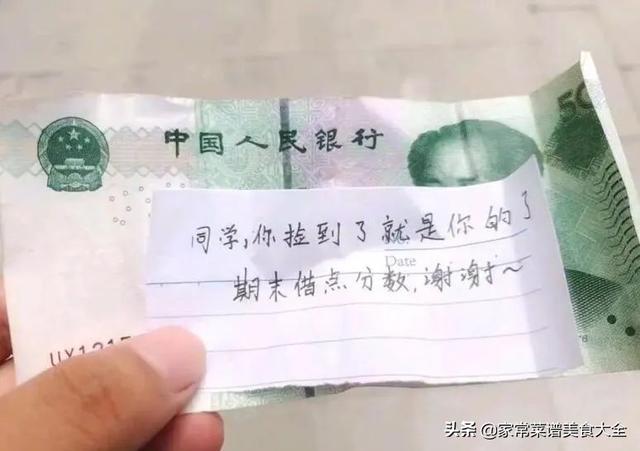 中国人民银行
50
同学,你捡到了就是你的了
Date
期末借点分数,谢谢~
头条 @家常菜谱美食大全